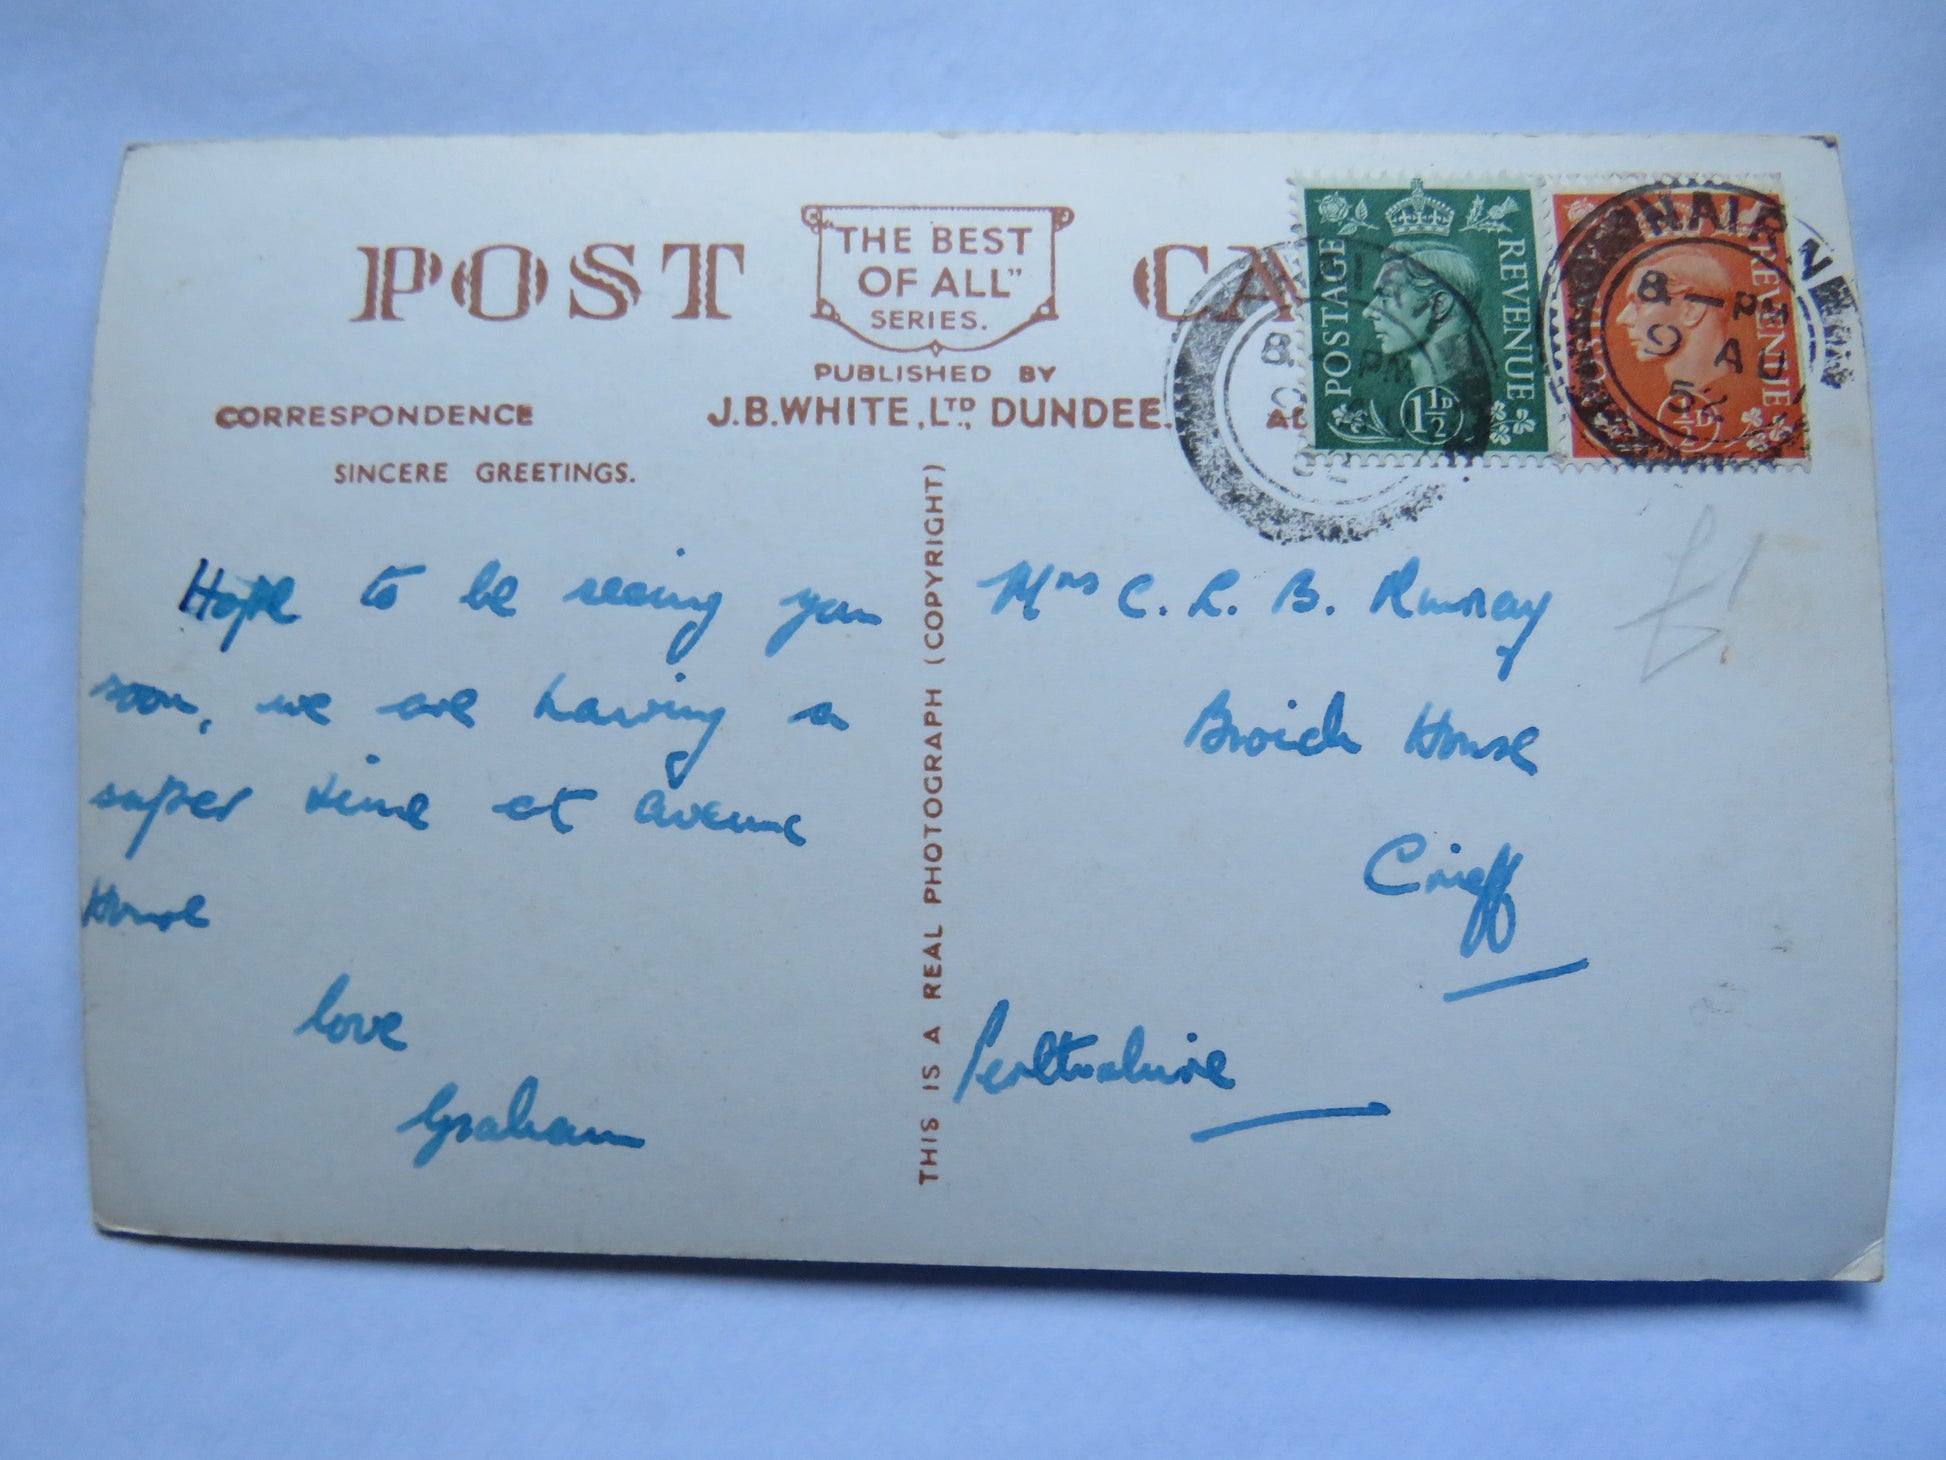 POST CA
"THE BEST
OF ALL"
SERIES.
PUBLISHED BY
J.B.WHITE, LTD., DUNDEE.
CORRESPONDENCE
SINCERE GREETINGS.
THIS IS A REAL PHOTOGRAPH (COPYRIGHT)
POSTAGE REVENUE
1½D
POSTAGE REVENUE
½D
NAIRN
8 - PM
9 AU
52
Hope to be seeing you
soon, we are having a
super time at avenue
House
love
Graham
Mrs C. L. B.
Broich House
Crieff
Perthshire
£1